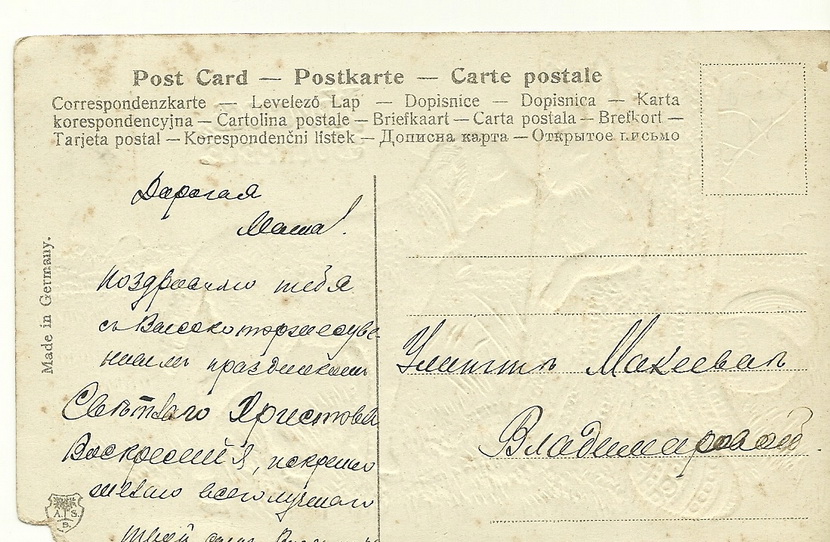 Post Card — Postkarte — Carte postale
Correspondenzkarte — Levelező Lap — Dopisnice — Dopisnica — Karta
korespondencyjna — Cartolina postale — Briefkaart — Carta postala — Brefkort —
Tarjeta postal — Korespondenční lístek — Дописна карта — Открытое письмо
Made in Germany.
Дорогая
Маша!
Поздравляю тебя
съ Высокоторжестве
ннымъ праздникомъ
Свѣтлаго Христова
Воскресения, искренно
желаю всего лучшаго
Твой
A. S.
B.
Макеевнѣ
Владимировой